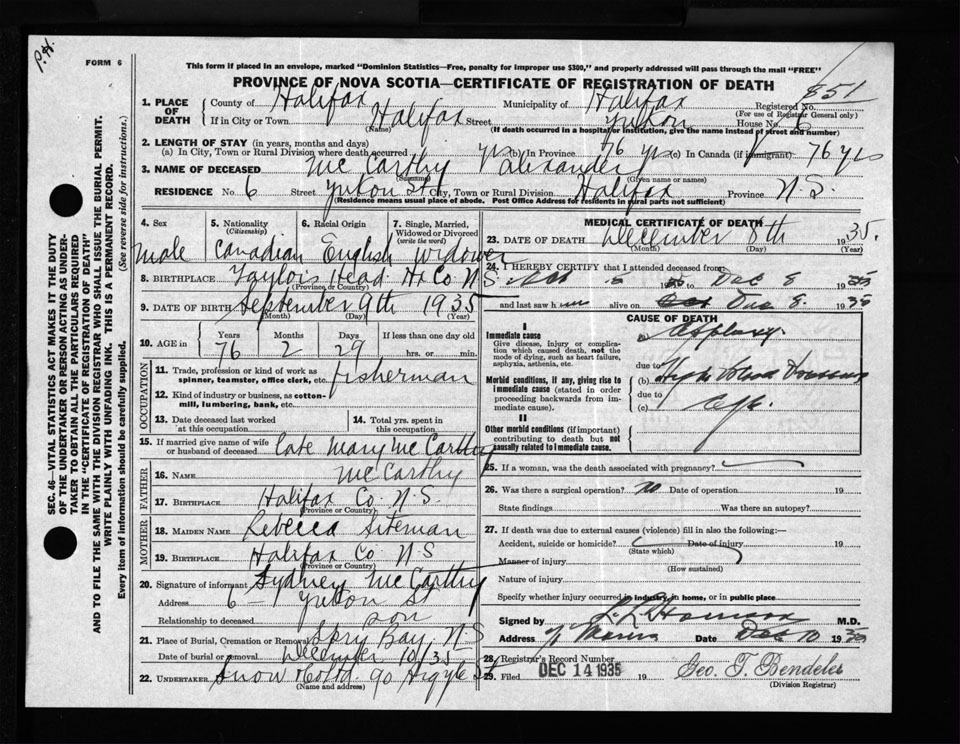 P.H.
FORM 6
This form if placed in an envelope, marked "Dominion Statistics—Free, penalty for improper use $300," and properly addressed will pass through the mail "FREE"
PROVINCE OF NOVA SCOTIA—CERTIFICATE OF REGISTRATION OF DEATH
851
1. PLACE OF DEATH { County of Halifax Municipality of Halifax Registered No.
(For use of Registrar General only)
If in City or Town Halifax Street Yukon House No. 6
(Name) (If death occurred in a hospital or institution, give the name instead of street and number)
2. LENGTH OF STAY (in years, months and days)
(a) In City, Town or Rural Division where death occurred yrs (b) In Province 76 yrs (c) In Canada (if immigrant) 76 yrs
3. NAME OF DECEASED McCarthy Alexander
(Surname) (Given name or names)
RESIDENCE No. 6 Street Yukon St City, Town or Rural Division Halifax Province N.S.
(Residence means usual place of abode. Post Office Address for residents in rural parts not sufficient)
4. Sex 5. Nationality (Citizenship) 6. Racial Origin 7. Single, Married, Widowed or Divorced (write the word)
male Canadian English widower
8. BIRTHPLACE Taylors Head Hx Co N S
(Province or Country)
9. DATE OF BIRTH September 9th 1935
(Month) (Day) (Year)
10. AGE in { Years Months Days If less than one day old
76 2 29 hrs. or min.
OCCUPATION
11. Trade, profession or kind of work as spinner, teamster, office clerk, etc. fisherman
12. Kind of industry or business, as cotton-mill, lumbering, bank, etc.
13. Date deceased last worked at this occupation 14. Total yrs. spent in this occupation
15. If married give name of wife or husband of deceased Late Mary McCarthy
FATHER
16. NAME McCarthy
17. BIRTHPLACE Halifax Co. N.S.
(Province or Country)
MOTHER
18. MAIDEN NAME Rebecca Siteman
19. BIRTHPLACE Halifax Co N S
(Province or Country)
20. Signature of informant Sydney McCarthy
Address 6 — Yukon St
Relationship to deceased son
21. Place of Burial, Cremation or Removal Spry Bay N S
Date of burial or removal December 10/35
22. UNDERTAKER Snow & Co Ltd. 90 Argyle St
(Name and address)
MEDICAL CERTIFICATE OF DEATH
23. DATE OF DEATH December 8th 1935.
(Month) (Day) (Year)
24. I HEREBY CERTIFY that I attended deceased from
8 19 to Dec 8 1935
and last saw him alive on Dec 8. 1935
CAUSE OF DEATH
I
Immediate cause
Give disease, injury or complication which caused death, not the mode of dying, such as heart failure, asphyxia, asthenia, etc.
(a) Apoplexy
due to
Morbid conditions, if any, giving rise to immediate cause (stated in order proceeding backwards from immediate cause).
(b) High Blood Pressure
due to
(c) Age
II
Other morbid conditions (if important) contributing to death but not causally related to immediate cause.
25. If a woman, was the death associated with pregnancy?
26. Was there a surgical operation? no Date of operation 19
State findings Was there an autopsy?
27. If death was due to external causes (violence) fill in also the following:—
Accident, suicide or homicide? Date of injury 19
(State which)
Manner of injury
(How sustained)
Nature of injury
Specify whether injury occurred in industry, in home, or in public place
Signed by M.D.
Address Date Dec 10 1935
28. Registrar's Record Number
29. Filed DEC 14 1935 19 Geo. T. Bendeler
(Division Registrar)
SEC. 46—VITAL STATISTICS ACT MAKES IT THE DUTY
OF THE UNDERTAKER OR PERSON ACTING AS UNDER-
TAKER TO OBTAIN ALL THE PARTICULARS REQUIRED
IN THE "CERTIFICATE OF REGISTRATION OF DEATH"
AND TO FILE THE SAME WITH THE DIVISION REGISTRAR WHO SHALL ISSUE THE BURIAL PERMIT.
WRITE PLAINLY WITH UNFADING INK. THIS IS A PERMANENT RECORD.
Every item of information should be carefully supplied. (See reverse side for instructions.)